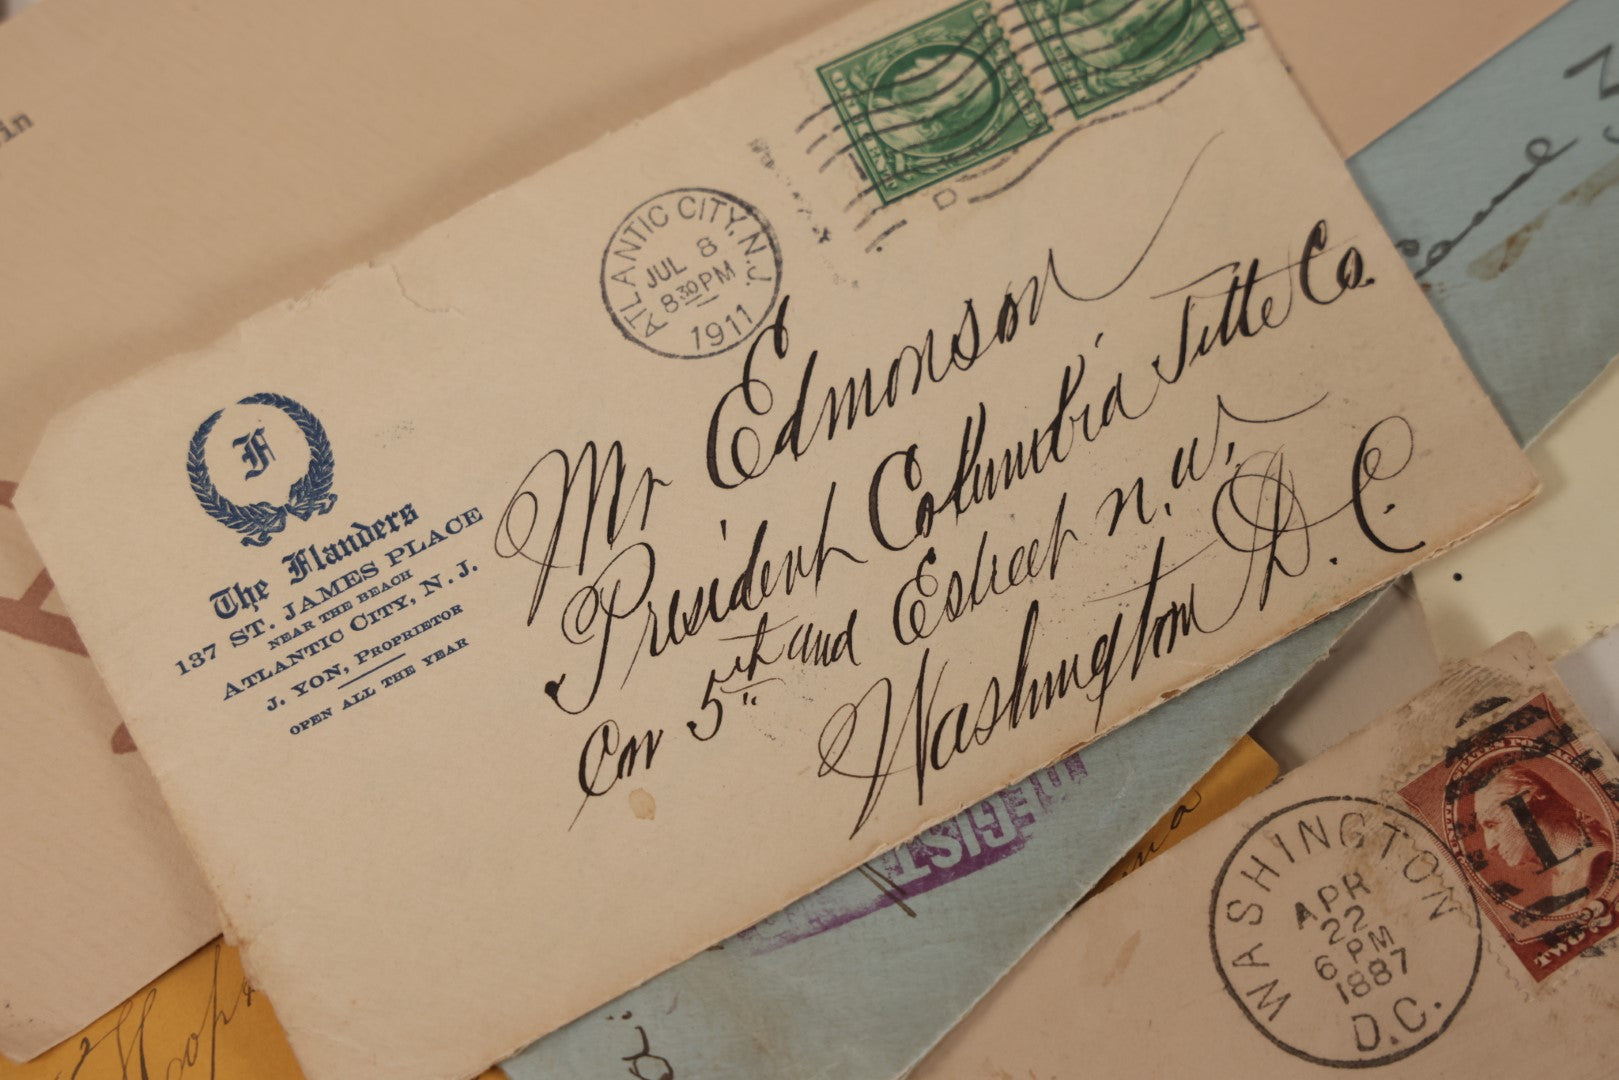 in
ATLANTIC CITY, N.J.
JUL 8
8 30 PM
1911
ONE CENT
F
The Flanders
137 ST. JAMES PLACE
NEAR THE BEACH
ATLANTIC CITY, N. J.
J. YON, PROPRIETOR
OPEN ALL THE YEAR
Mr Edmonson
President Columbia Title Co.
Cor 5th and E street n.w.
Washington D.C.
REGIST
WASHINGTON
APR
22
6 PM
1887
D.C.
L
TWO
2